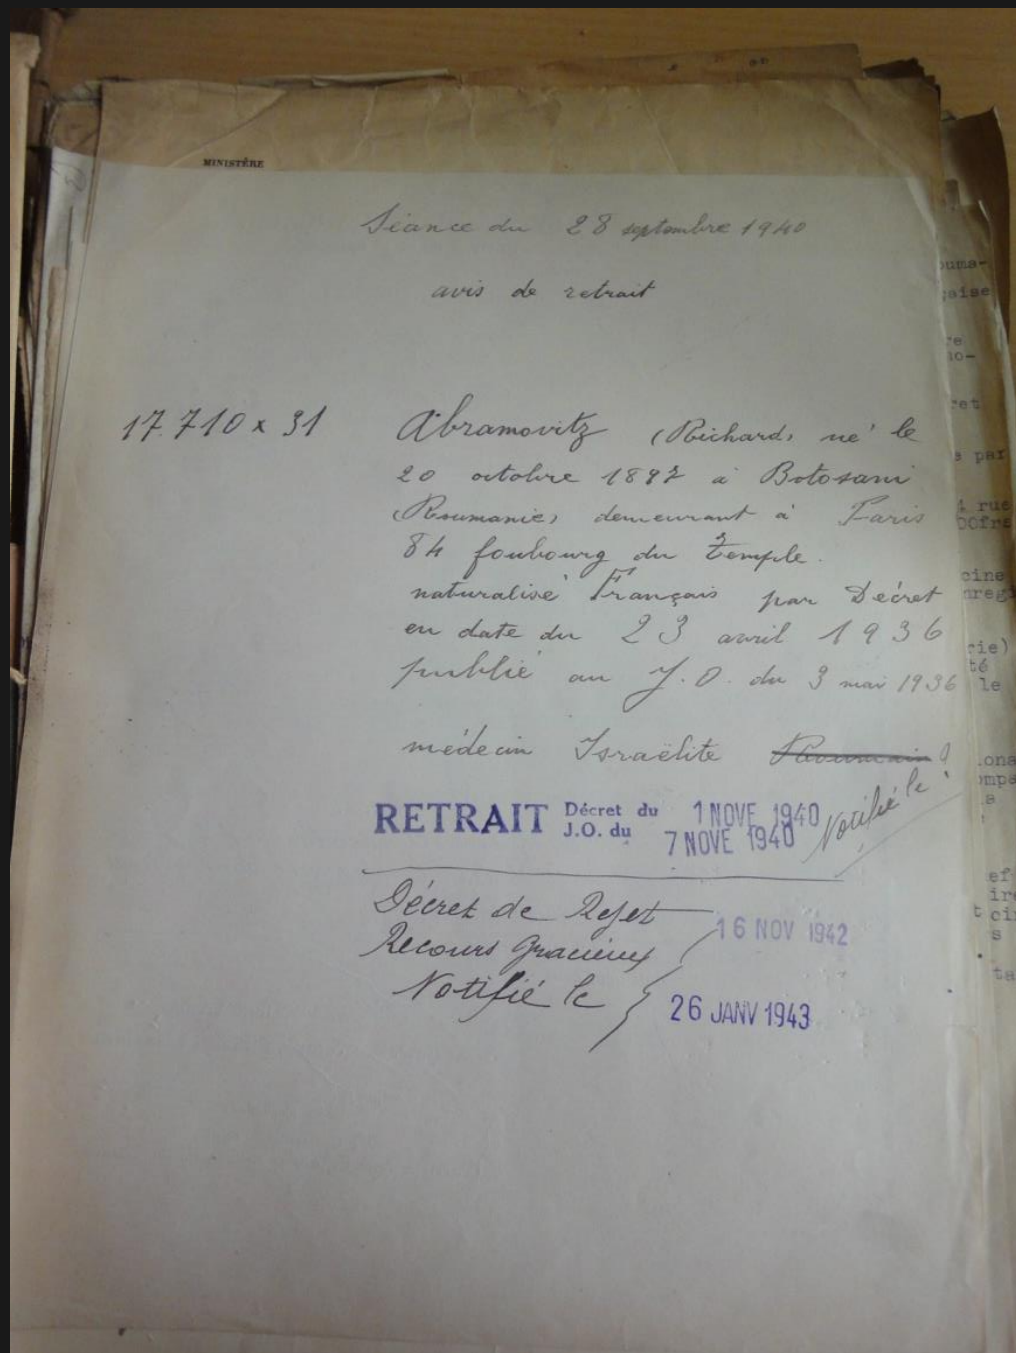 MINISTÈRE
Séance du 28 septembre 1940
avis de retrait
17.710 x 31
Abramovitz (Richard) né le
20 octobre 1897 à Botosani
(Roumanie) demeurant à Paris
84 foubourg du Temple.
naturalisé Français par Décret
en date du 23 avril 1936
publié au J.O. du 3 mai 1936
médecin Israëlite
RETRAIT Décret du 1 NOVE 1940
J.O. du 7 NOVE 1940
Notifié le
Décret de Rejet 16 NOV 1942
Recours Gracieux
Notifié le 26 JANV 1943
ouma-
çaise
re
no-
ret
s par
rue
cine
nregi
rie)
té
le